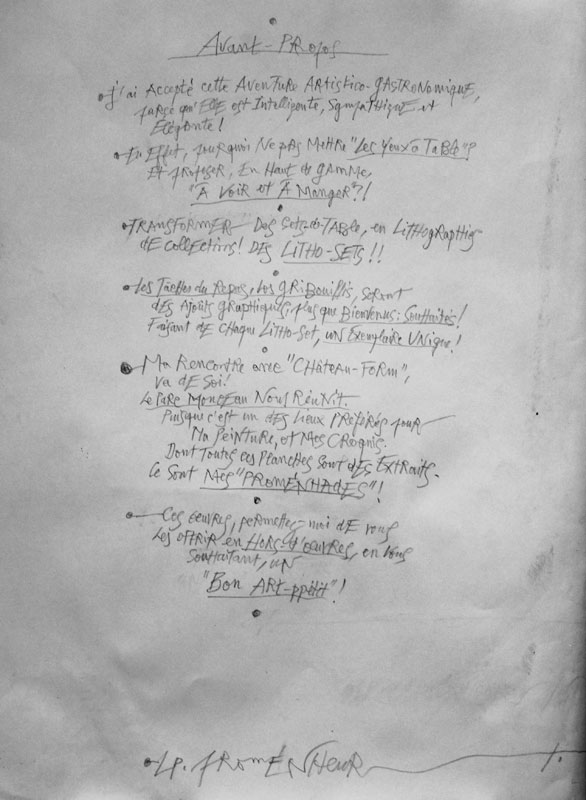 Avant-Propos
j'ai Accepté cette Aventure Artistico-gastronomique,
parce qu'Elle est Intelligente, Sympathique et
Elégante!
En Effet, pourquoi Ne pas Mettre "Les Yeux à Table"?
Et proposer, En Haut de gamme,
"À Voir et À Manger"?!
Transformer Des Sets-de-Table, en Lithographies
de Collections! Des Litho-Sets!!
Les Taches du Repas, Les gribouillis, seront
des Ajouts graphiques, plus que Bienvenus: Souhaités!
Faisant de Chaque Litho-Set, un Exemplaire Unique!
Ma Rencontre avec "Château-Form",
va de Soi!
Le Parc Monceau Nous Réunit.
Puisque c'est un des Lieux Préférés pour
Ma Peinture, et Mes Croquis.
Dont Toutes ces Planches Sont des Extraits.
Ce Sont Mes "Promènhades"!
Ces Oeuvres, permettez-moi de vous
Les offrir en Hors-d'oeuvres, en vous
Souhaitant, un
"Bon Art-ppétit"!